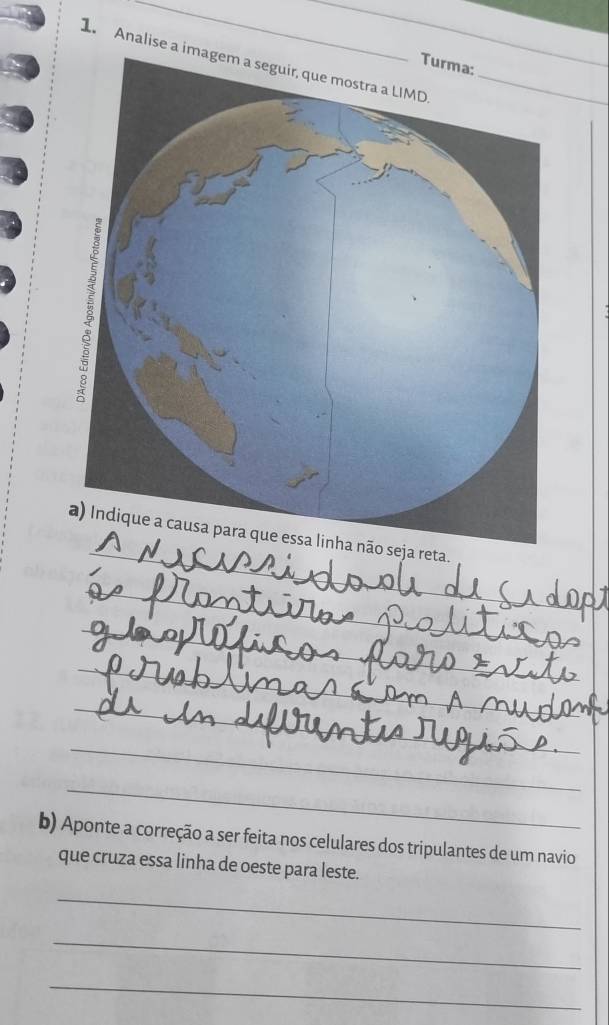 Turma:
1. Analise a imagem a seguir, que mostra a LIMD.
D'Arco Editori/De Agostini/Album/Fotoarena
a) Indique a causa para que essa linha não seja reta.
A Necessidade de se adapt
ás fronteiras politicas
geográficas para evite
problemas com A mudanç
de in diferentes regiõe.
b) Aponte a correção a ser feita nos celulares dos tripulantes de um navio
que cruza essa linha de oeste para leste.